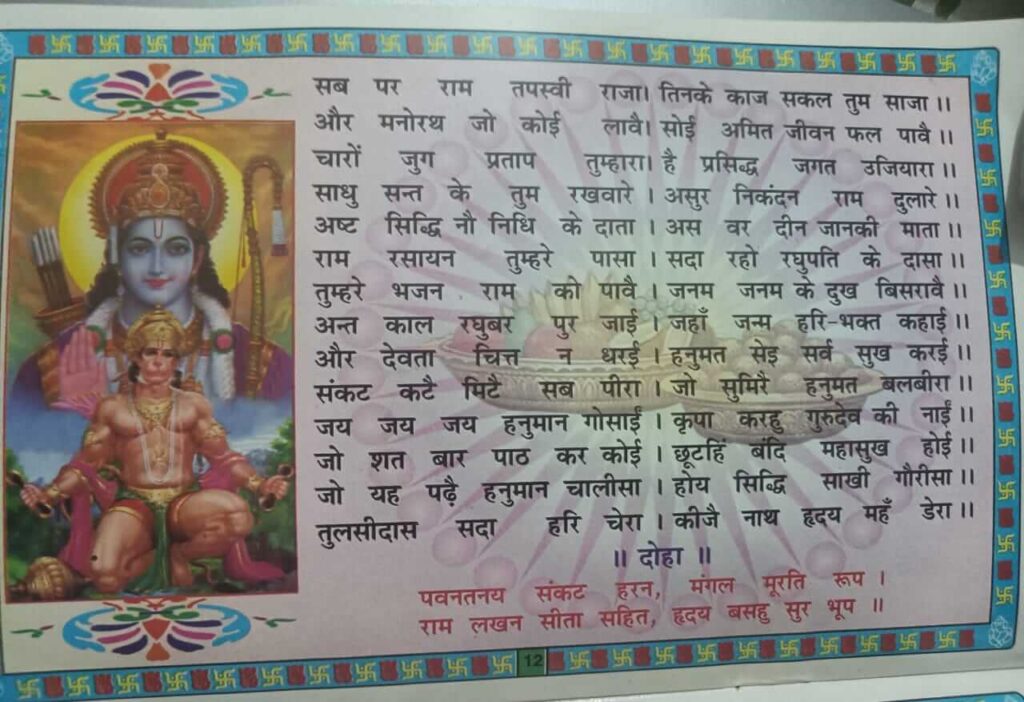 सब पर राम तपस्वी राजा। तिनके काज सकल तुम साजा ।।
और मनोरथ जो कोई लावै। सोई अमित जीवन फल पावै ।।
चारों जुग प्रताप तुम्हारा। है प्रसिद्ध जगत उजियारा ।।
साधु सन्त के तुम रखवारे । असुर निकंदन राम दुलारे ।।
अष्ट सिद्धि नौ निधि के दाता । अस वर दीन जानकी माता ।।
राम रसायन तुम्हरे पासा । सदा रहो रघुपति के दासा ।।
तुम्हरे भजन राम को पावै । जनम जनम के दुख बिसरावै ।।
अन्त काल रघुबर पुर जाई । जहाँ जन्म हरि-भक्त कहाई ।।
और देवता चित्त न धरई । हनुमत सेइ सर्व सुख करई ।।
संकट कटै मिटै सब पीरा । जो सुमिरै हनुमत बलबीरा ।।
जय जय जय हनुमान गोसाईं । कृपा करहु गुरुदेव की नाईं ।।
जो शत बार पाठ कर कोई । छूटहिं बंदि महासुख होई ।।
जो यह पढ़ै हनुमान चालीसा । होय सिद्धि साखी गौरीसा ।।
तुलसीदास सदा हरि चेरा । कीजै नाथ हृदय महँ डेरा ।।
।। दोहा ।।
पवनतनय संकट हरन, मंगल मूरति रूप ।
राम लखन सीता सहित, हृदय बसहु सुर भूप ।।
12